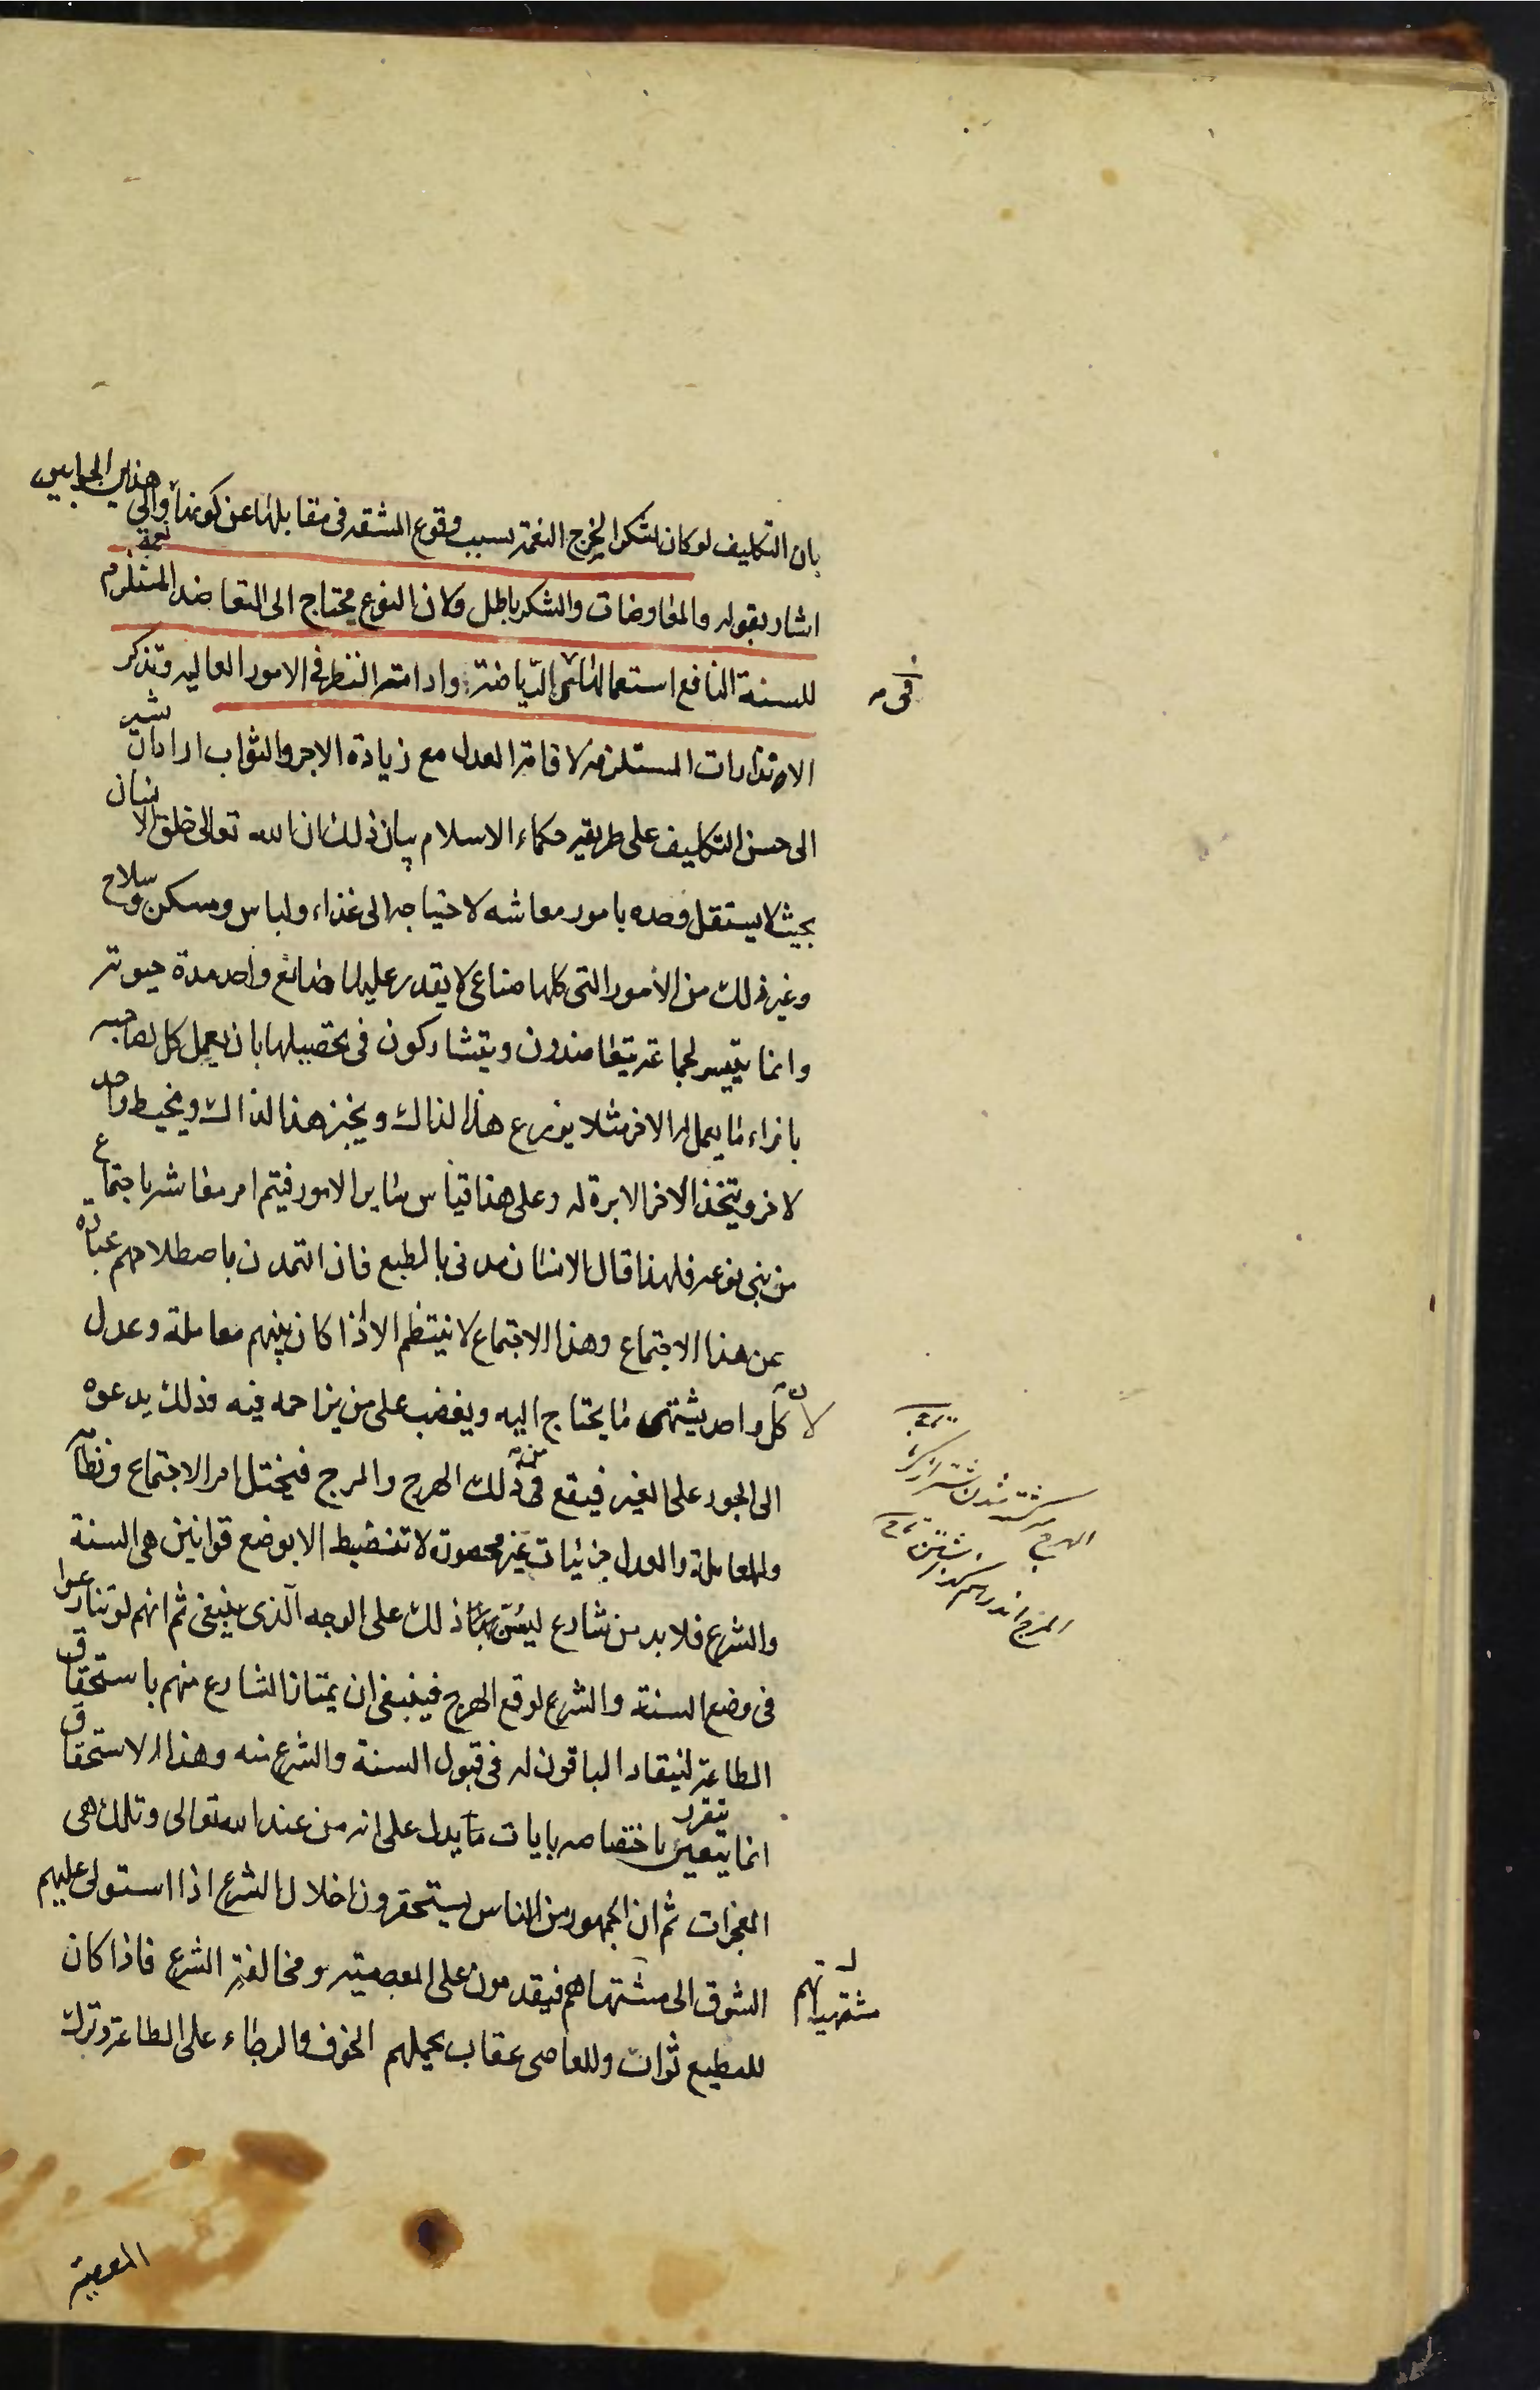 بان التكليف لو كان شكرا لخرج النعمة بسبب وقوع المشقة فى مقابلتها عن كونها نعمة والى هذين الجوابين
اشار بقوله والمفاوضات والشكر باطل ولان النوع محتاج الى التعاضد المستلزم
للسنة النافع استعمالها فى الرياضة وادامته النظر فى الامور العالية وتذكر
الانذارات المستلزمة لاقامة العدل مع زيادة الاجر والثواب اراد ان يشير
الى حسن التكليف على طريقه حكماء الاسلام بيان ذلك ان الله تعالى خلق الانسان
بحيث لا يستقل وحده بامور معاشه لاحتياجه الى غذاء ولباس ومسكن وسلاح
وغير ذلك من الامور التى كلها صناعى لا يقدر عليها صانع واحد مدة حيوته
وانما يتيسر لجماعة يتعاضدون ويتشاركون فى تحصيلها بان يعمل كل لصاحبه
بازاء ما يعمل له الاخر مثلا يزرع هذا لذاك ويخبز هذا لذاك ويخيط واحد
لاخر ويتخذ الاخر الابرة له وعلى هذا قياس ساير الامور فيتم امر معاشه باجتماع
من بنى نوعه فلهذا قال الانسان مدنى بالطبع فان التمدن باصطلاحهم عبارة
عن هذا الاجتماع وهذا الاجتماع لا ينتظم الا اذا كان بينهم معاملة وعدل
لان كل واحد يشتهى ما يحتاج اليه ويغضب على من يزاحمه فيه وذلك يدعوه
الى الجور على الغير فيقع من ذلك الهرج والمرج فيختل امر الاجتماع ونظامه
وللمعاملة والعدل جزئيات غير محصورة لا تنضبط الا بوضع قوانين هى السنة
والشرع فلا بد من شارع ليسن ذلك على الوجه الذى ينبغى ثم انهم لو تنازعوا
فى وضع السنة والشرع لوقع الهرج فينبغى ان يمتاز الشارع منهم باستحقاق
الطاعة لينقاد الباقون له فى قبول السنة والشرع منه وهذا الاستحقاق
انما يتعين يتقرر باختصاصه بايات ما يدل على انه من عند الله تعالى وتلك هى
المعجزات ثم ان الجمهور من الناس يستحقرون اخلال الشرع اذا استولى عليهم
الشوق الى مشتهاهم فيقدمون على المعصية ومخالفة الشرع فاذا كان
للمطيع ثواب وللعاصى عقاب يحملهم الخوف والرجاء على الطاعة وترك
المعصية
فى
الهرج
مشتهياتهم